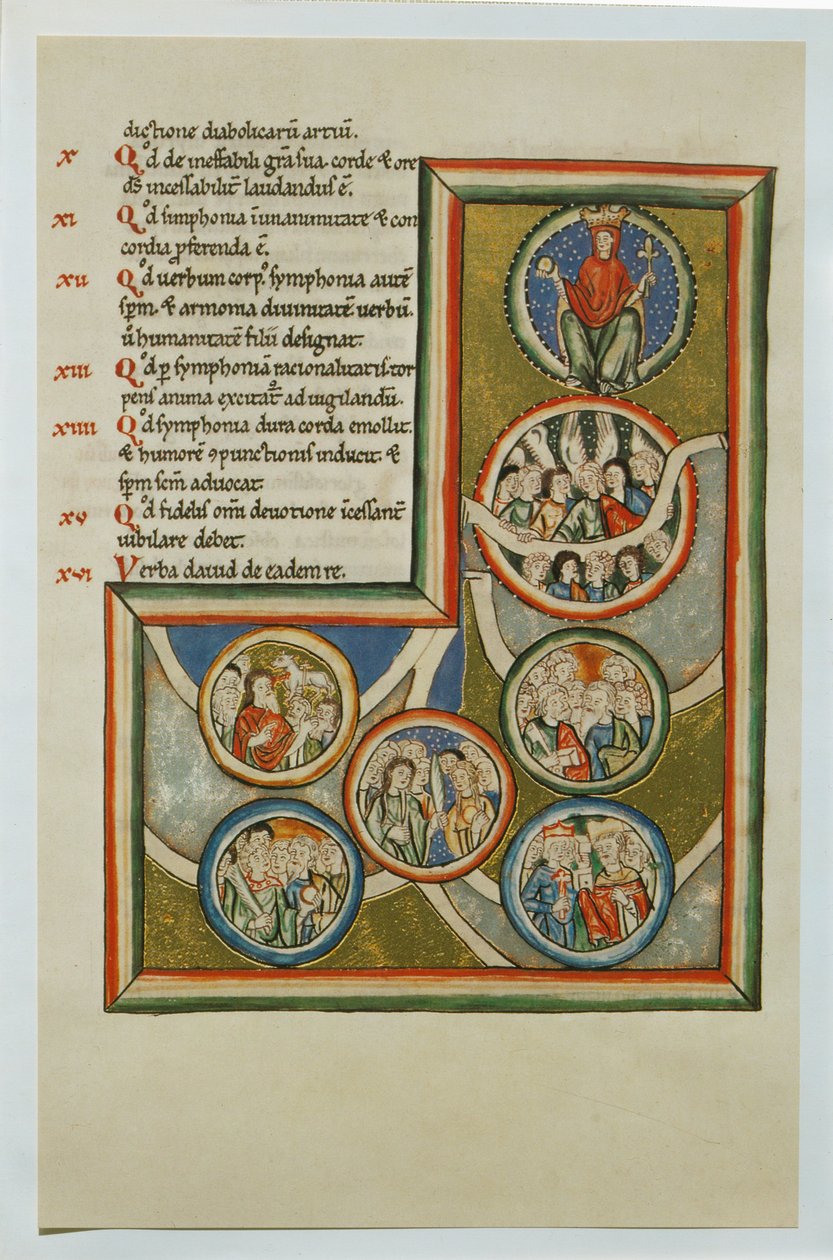 dictione diabolicarū artiū.
x Qᵒd de ineffabili gr̄a sua. corde & ore
dſ̄ inceſſabilit̄ laudandus ē.
xi Qᵒd simphonia ī unanimitate & con
cordia ꝓferenda ē.
xii Qᵒd uerbum corpꝰ. symphonia autē
sp̄m. & armonia diuinitatē uerbū.
ū humanitatē filii designat.
xiii Qᵒd ꝑ symphoniā racionalitatis. tor
pens anima excitatᷣ ad uigilandū.
xiiii Qᵒd symphonia dura corda emollit.
& humorē ꝯpunctionis inducit. &
sp̄m sc̄m aduocat.
xv Qᵒd fidelis om̄i deuotione īcessant̄
iubilare debet.
xvi Verba dauid de eadem re.